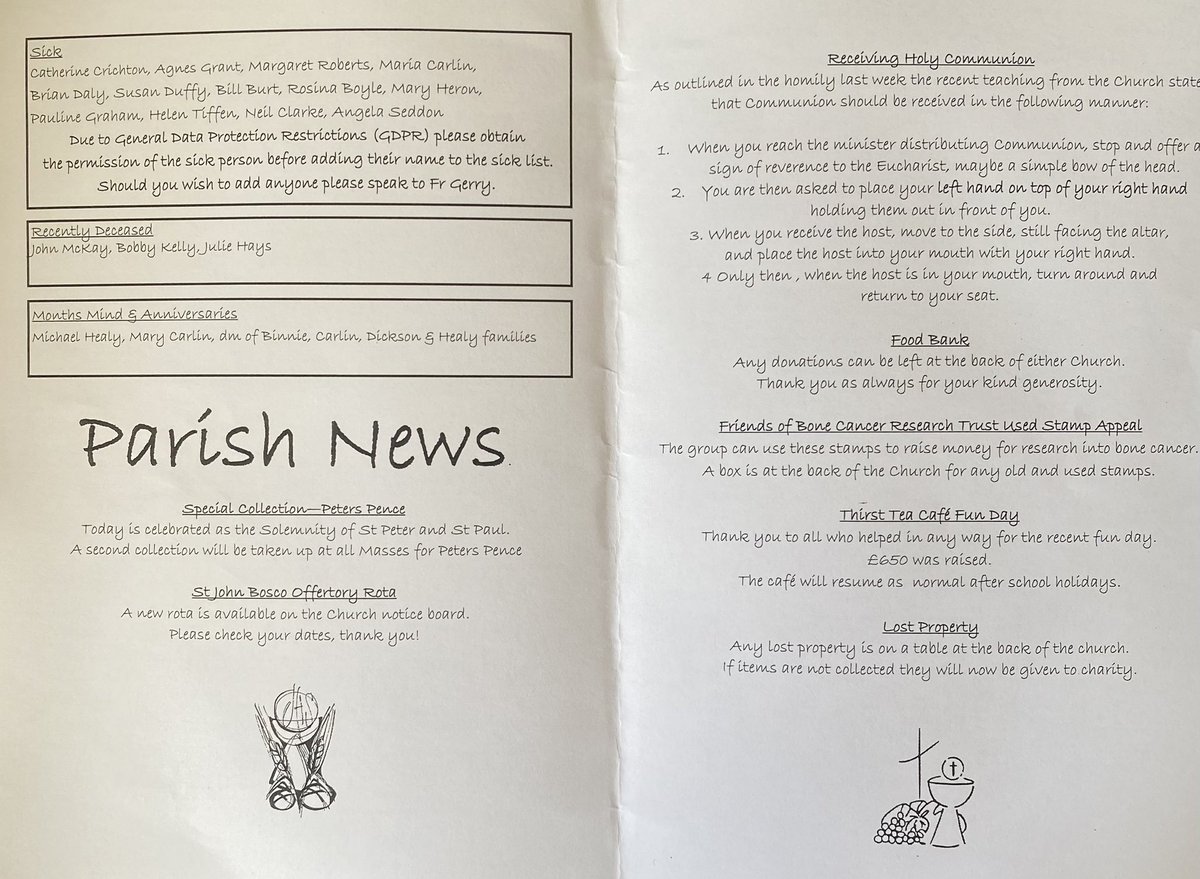 Sick
Catherine Crichton, Agnes Grant, Margaret Roberts, Maria Carlin,
Brian Daly, Susan Duffy, Bill Burt, Rosina Boyle, Mary Heron,
Pauline Graham, Helen Tiffen, Neil Clarke, Angela Seddon
Due to General Data Protection Restrictions (GDPR) please obtain
the permission of the sick person before adding their name to the sick list.
Should you wish to add anyone please speak to Fr Gerry.
Recently Deceased
John McKay, Bobby Kelly, Julie Hays
Months Mind & Anniversaries
Michael Healy, Mary Carlin, dm of Binnie, Carlin, Dickson & Healy families
Parish News
Special Collection—Peters Pence
Today is celebrated as the Solemnity of St Peter and St Paul.
A second collection will be taken up at all Masses for Peters Pence
St John Bosco Offertory Rota
A new rota is available on the Church notice board.
Please check your dates, thank you!
Receiving Holy Communion
As outlined in the homily last week the recent teaching from the Church state
that Communion should be received in the following manner:
1. When you reach the minister distributing Communion, stop and offer a
sign of reverence to the Eucharist, maybe a simple bow of the head.
2. You are then asked to place your left hand on top of your right hand
holding them out in front of you.
3. When you receive the host, move to the side, still facing the altar,
and place the host into your mouth with your right hand.
4 Only then , when the host is in your mouth, turn around and
return to your seat.
Food Bank
Any donations can be left at the back of either Church.
Thank you as always for your kind generosity.
Friends of Bone Cancer Research Trust Used Stamp Appeal
The group can use these stamps to raise money for research into bone cancer.
A box is at the back of the Church for any old and used stamps.
Thirst Tea Café Fun Day
Thank you to all who helped in any way for the recent fun day.
£650 was raised.
The café will resume as normal after school holidays.
Lost Property
Any lost property is on a table at the back of the church.
If items are not collected they will now be given to charity.